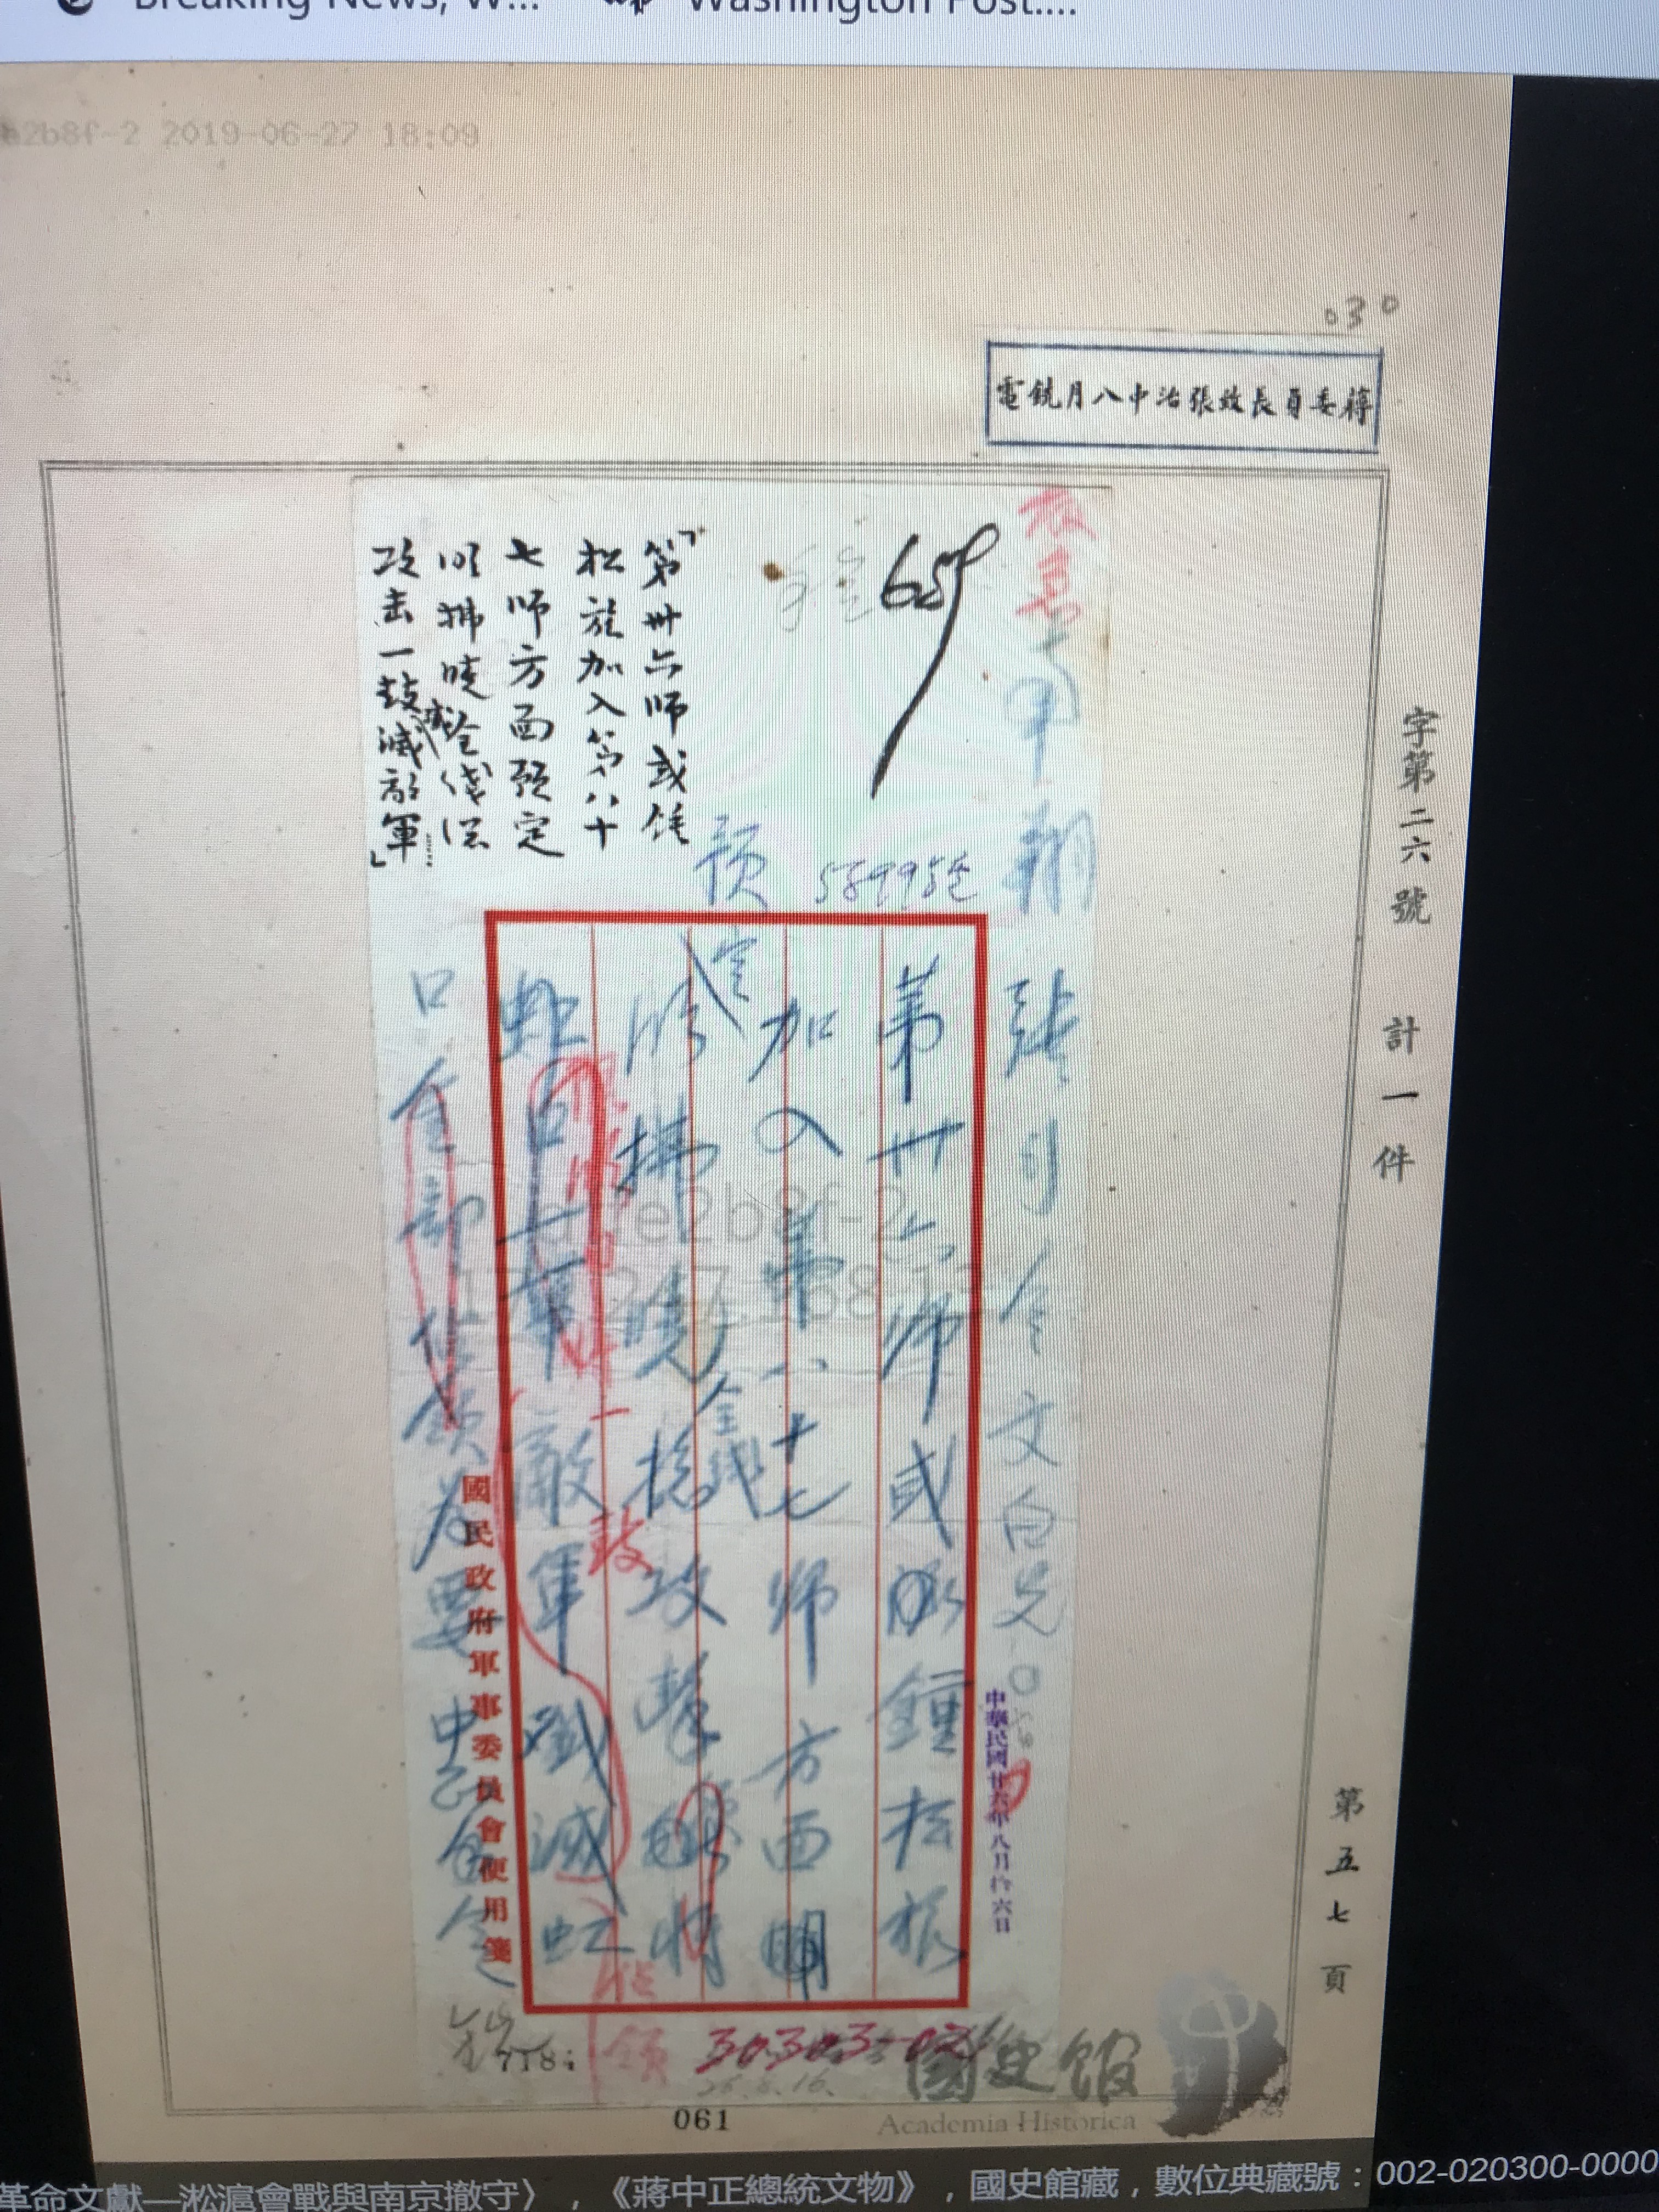 Breaking News, W...
Washington Post....
a2b8f-2 2019-06-27 18:09
030
蔣委員長致張治中八月銑電
字第二六號 計一件
第五七頁
659
「第卅六師或鍾
松旅加入第八十
七師方面預定
明拂曉全線總
攻击一鼓滅敵軍……」
限
張司令文白兄
中華民國廿六年八月拾六日
第卅六師或鍾松旅
加入第八十七師方面明
定
拂曉
全線
總攻擊
將
虹口
敵軍殲滅虹
口全部佔領為要 中正
一
鼓
佔
領
國民政府軍事委員會便用箋
30303-02
26.8.16.
718
國史館
Academia Historica
061
革命文獻—淞滬會戰與南京撤守〉,《蔣中正總統文物》,國史館藏,數位典藏號:002-020300-0000